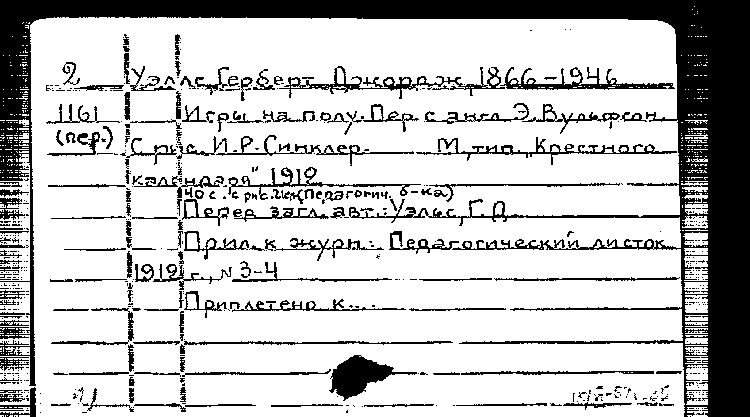 2 Уэллс, Герберт Джордж, 1866-1946
1161 Игры на полу. Пер. с англ. Э. Вульфсон.
(пер.) С рис. И.Р. Синклер. М., тип. "Крестного
календаря" 1912
40 с. с рис. (Педагогич. б-ка)
Перед загл. авт.: Уэльс, Г.Д.
Прил. к журн.: Педагогический листок
1912 г., N 3-4
Приплетено к...